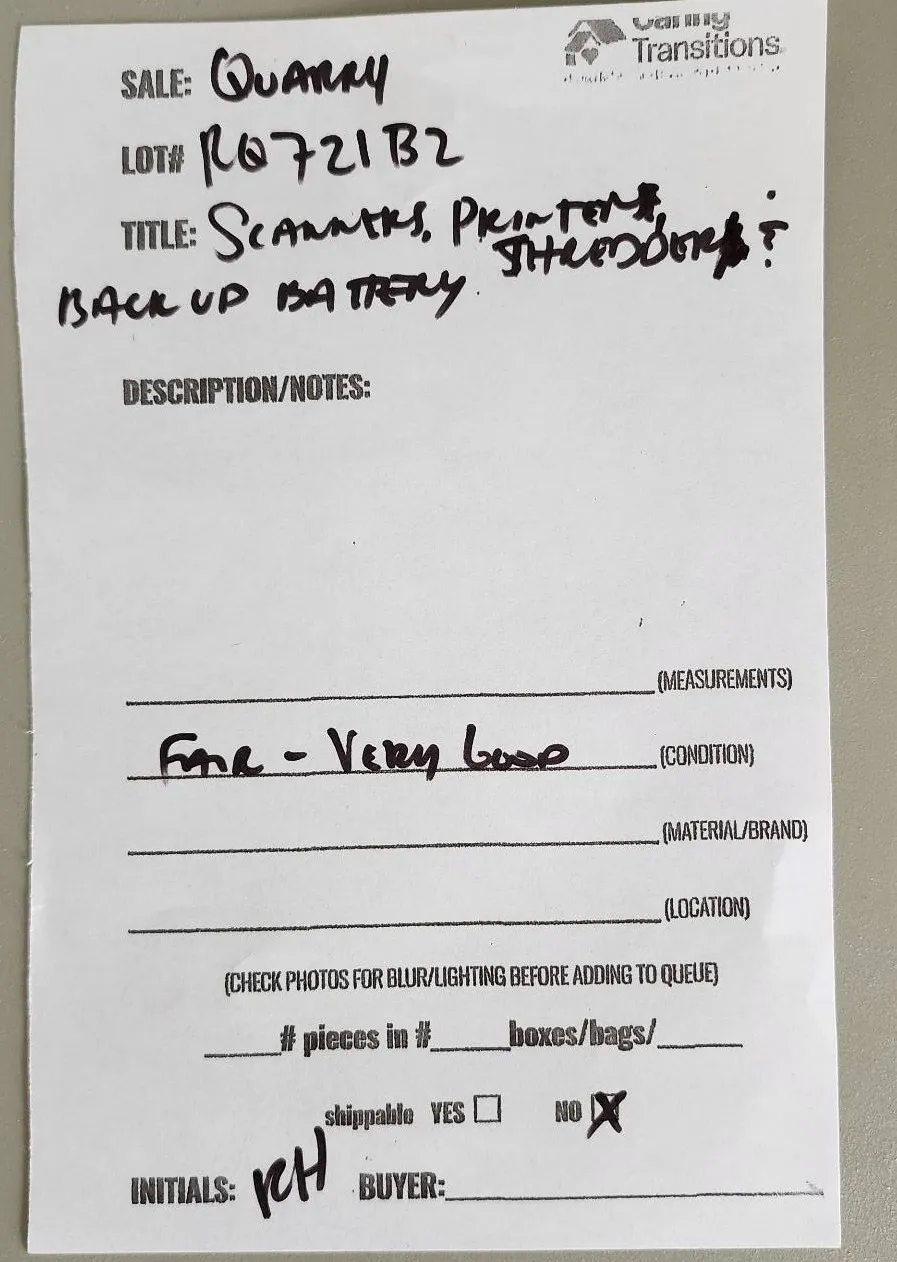 Caring
Transitions
SALE: QUARRY
LOT# RQ721B2
TITLE: SCANNERS, PRINTER,
SHREDDER &
BACK UP BATTERY.
DESCRIPTION/NOTES:
(MEASUREMENTS)
FAIR - VERY GOOD (CONDITION)
(MATERIAL/BRAND)
(LOCATION)
(CHECK PHOTOS FOR BLUR/LIGHTING BEFORE ADDING TO QUEUE)
____# pieces in #____boxes/bags/____
shippable YES ☐ NO ☒
INITIALS: RH BUYER: